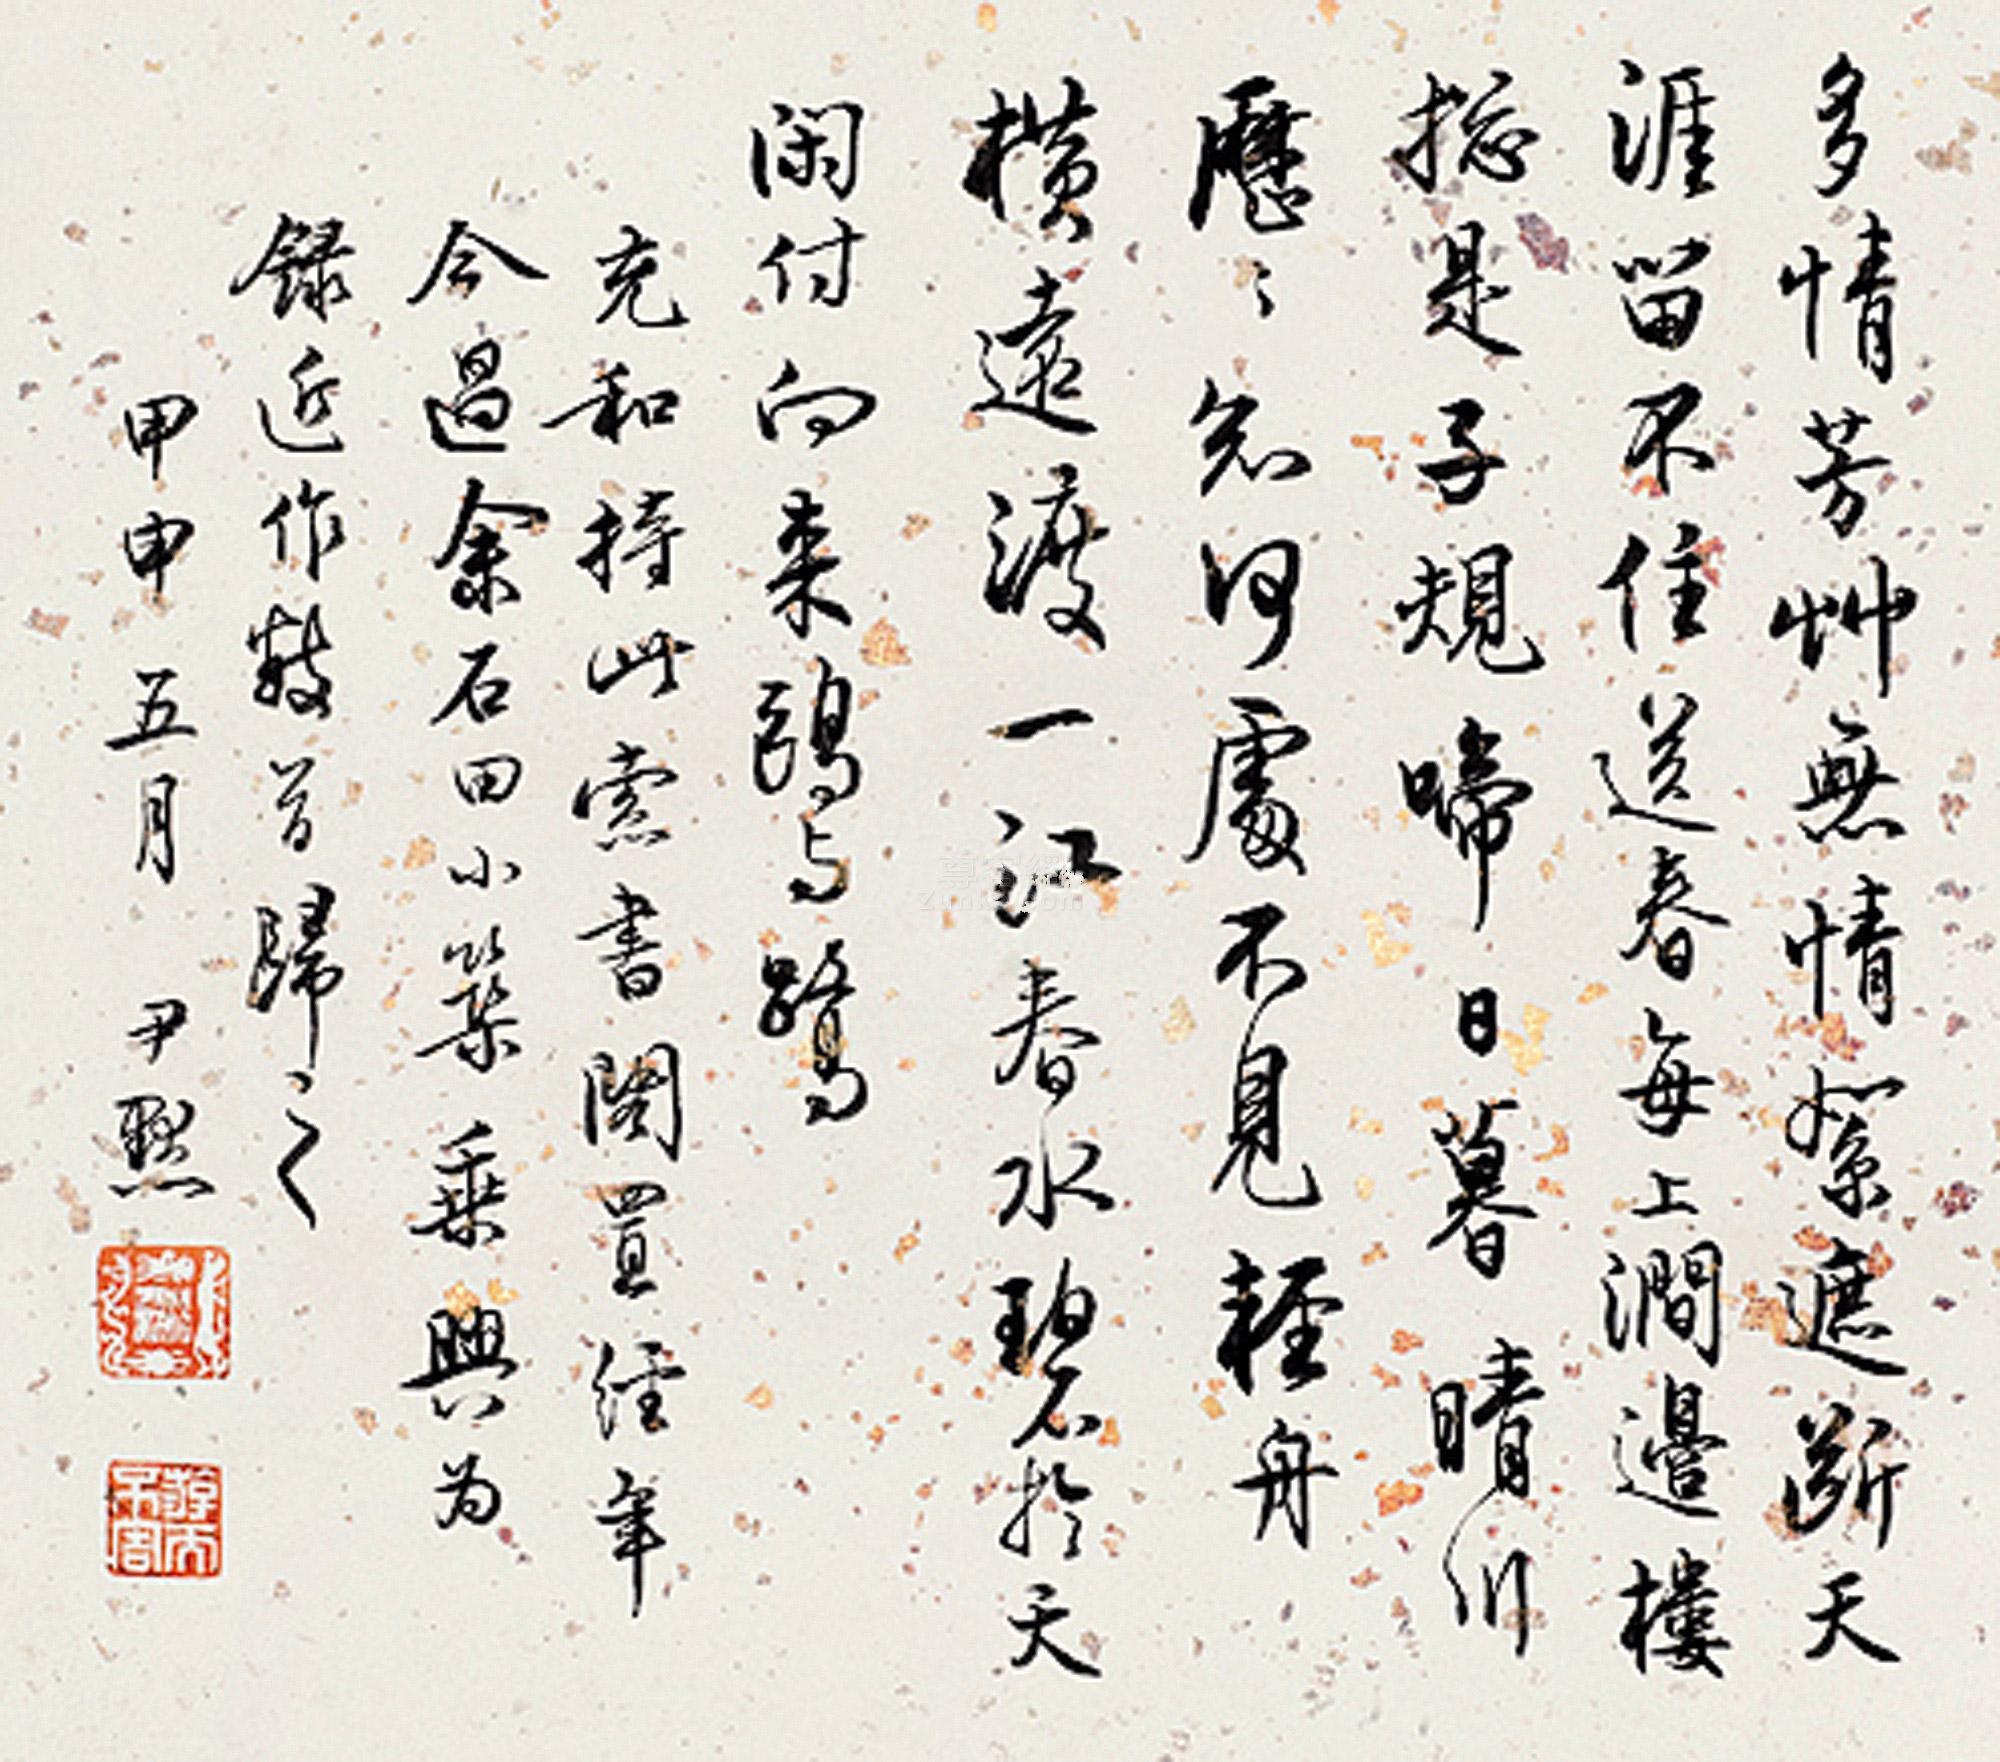 多情芳艸無情絮遮斷天
涯留不住送春每上澗邊樓
捴是子規啼日暮 晴川
歷〻知何處不見輕舟
橫遠渡一江春水碧於天
閑付向來鷗与鷺
充和持此索書閣置經年
今過余石田小築乘興为
錄近作數首歸之
甲申五月 尹默